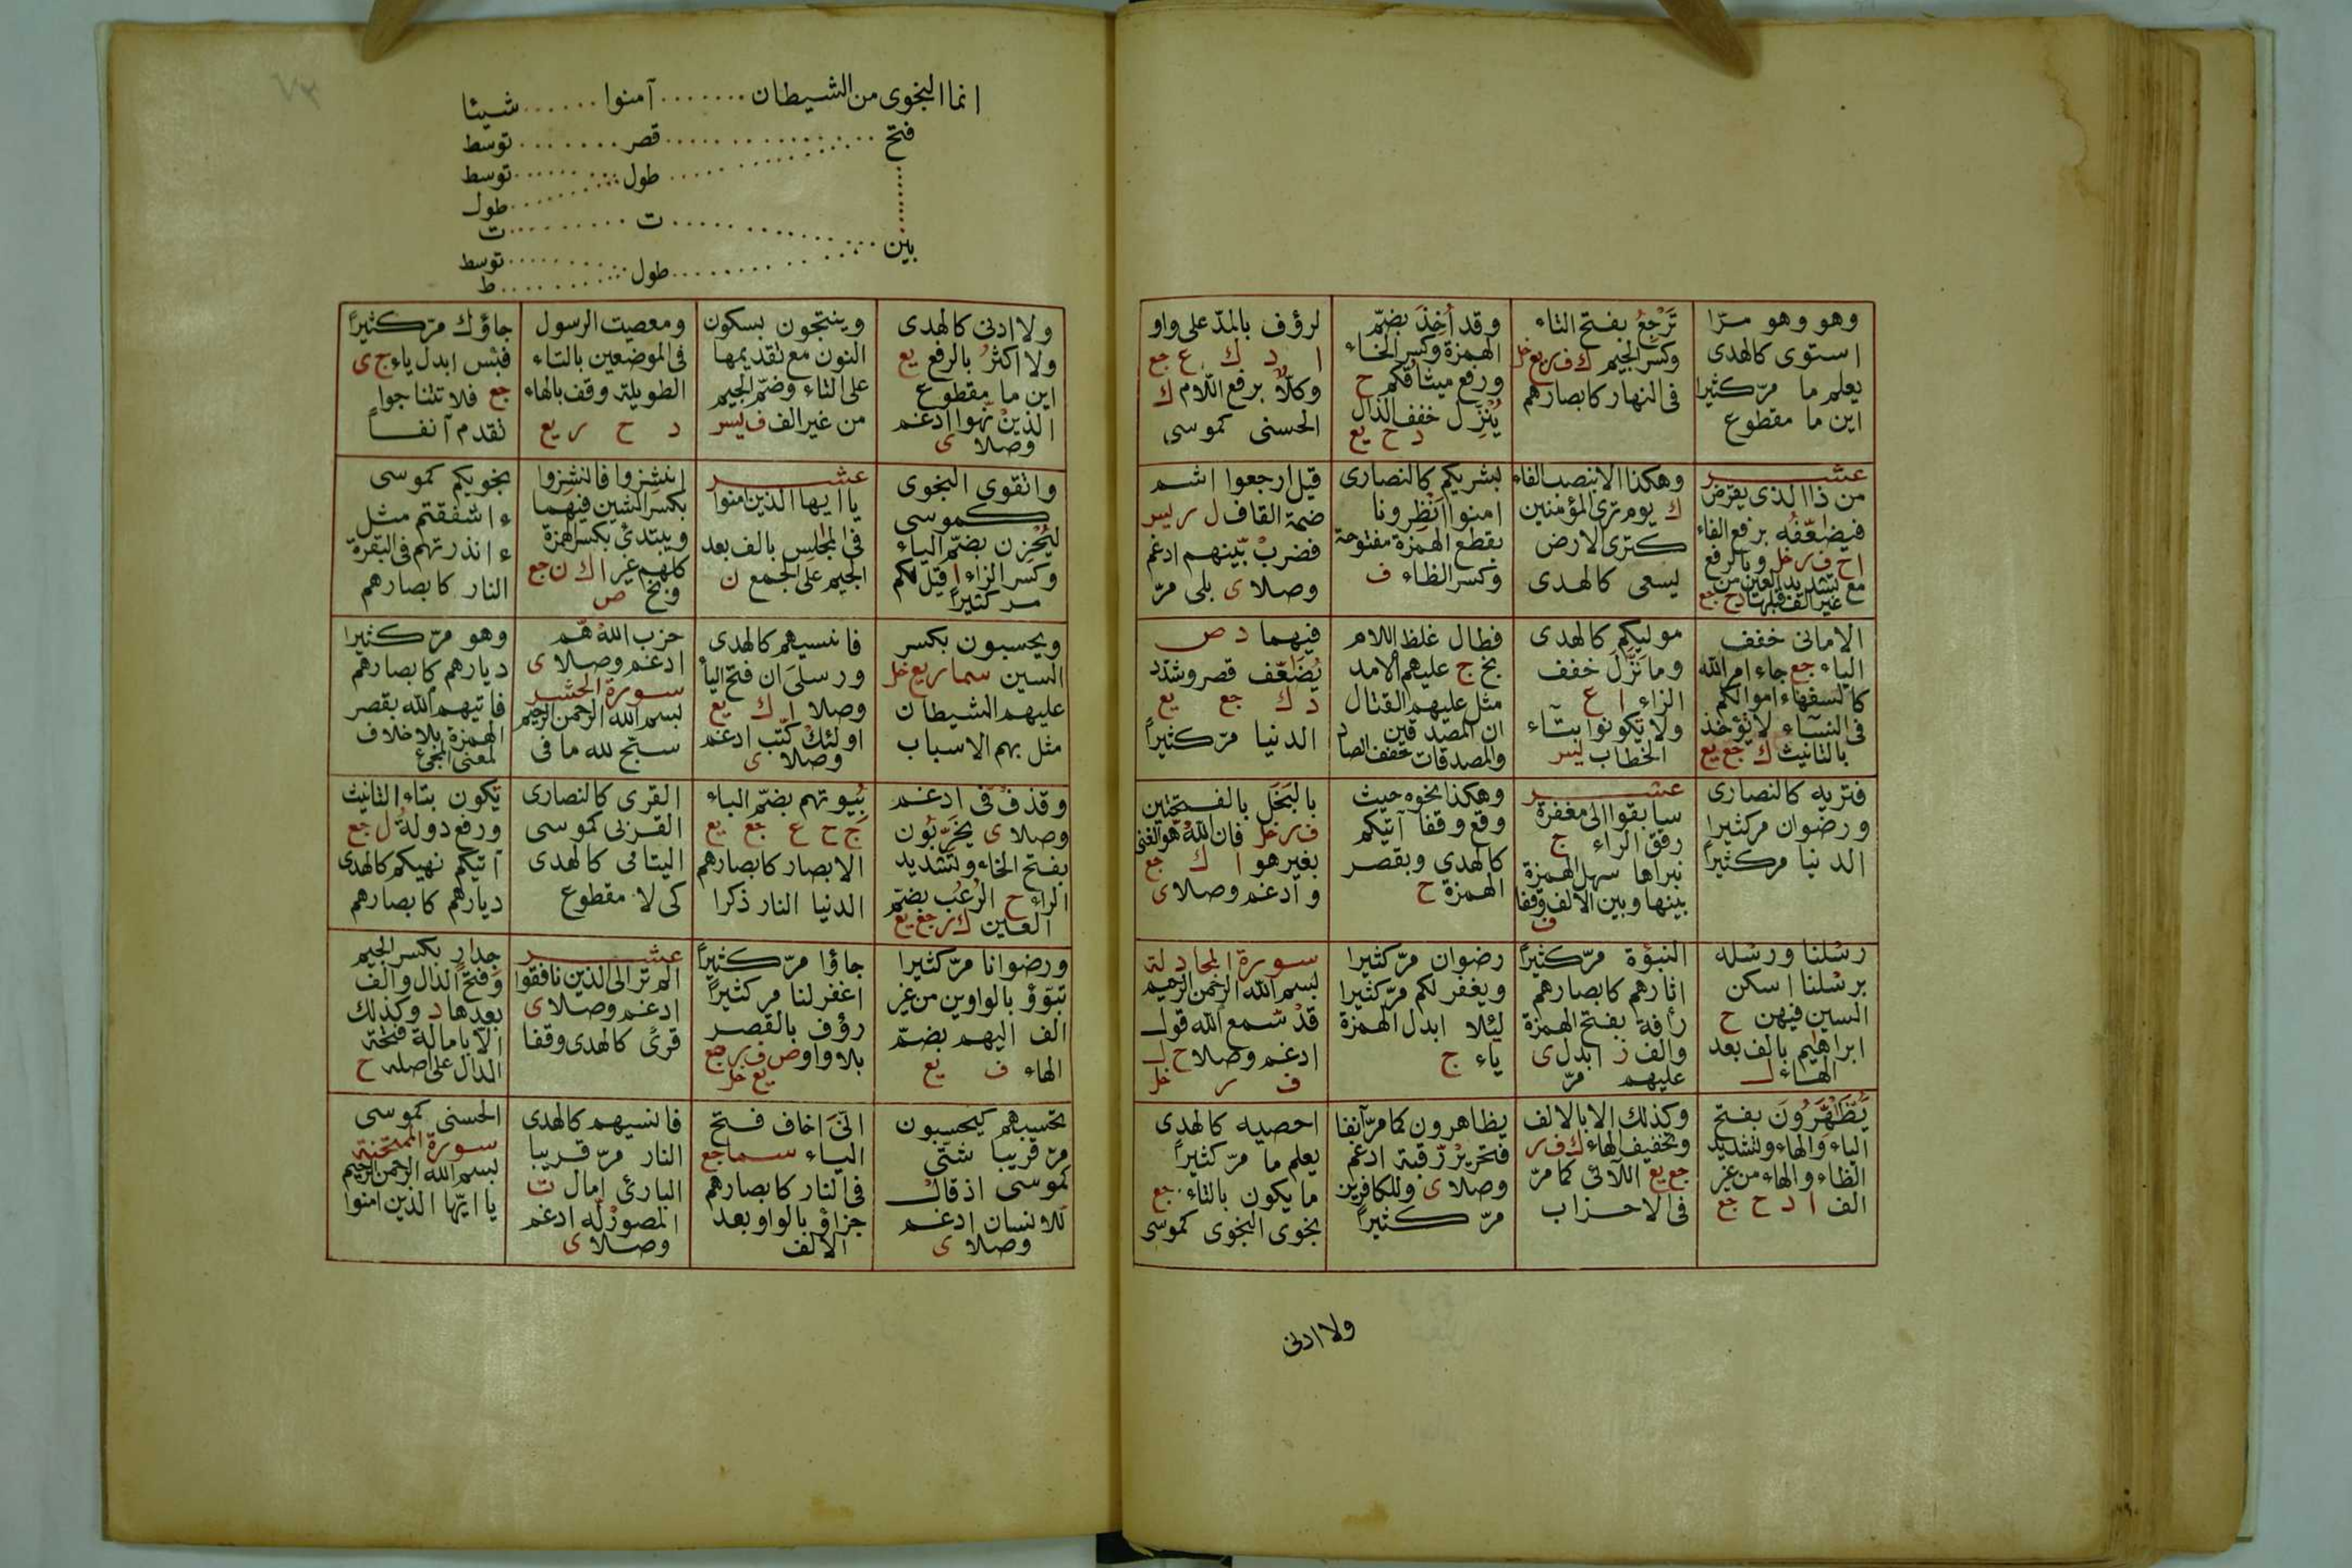 وهو وهو مرّا
استوى كالهدى
يعلم ما مرّ كثيرا
اين ما مقطوع
تَرْجِعُ بفتح التاء
وكسر الجيم ك ف ر يع خل
فى النهار كابصارهم
وقد أُخِذَ بضمّ
الهمزة وكسر الخاء
ورفع ميثاقكم ح
يُنْزِل خفف الذال
د ح يع
لرؤف بالمدّ على واو
ا د ك ع جع
وكلاٌّ برفع اللّام ك
الحسنى كموسى
عشر
من ذا الذى يقرض
فيضاعفُه برفع الفاء
ا ح ف ر خل وبالرفع
مع تشديد العين من
غير الف قبلها د ح جع
وهكذا الا بنصب الفاء
ك يوم ترى المؤمنين
كترى الارض
يسعى كالهدى
بشريكم كالنصارى
امنوا أَنْظِرونا
بقطع الهمزة مفتوحة
وكسر الظاء ف
قيل ارجعوا اشم
ضمة القاف ل ر يس
فضربْ بّينهم ادغم
وصلا ى بلى مرّ
الامانى خفف
الياء جع جاء امر الله
كالسفهاء اموالكم
فى النسآء لا يؤخذ
بالتانيث ك جع يع
موليكم كالهدى
وما نَزَلَ خفف
الزاء ا ع
ولا يكونوا بتآء
الخطاب يس
فطال غلظ اللام
بخ ج عليهم الامد
مثل عليهم القتال
ان المصدقين
والمصدقات خفف الصاد
فيهما د ص
يُضَعَّف قصر وشدّد
د ك جع يع
الدنيا مرّ كثيراً
فتريه كالنصارى
ورضوان مر كثيرا
الدنيا مر كثيراً
عشر
سابقوا الى مغفرة
رقق الراء ج
نبراها سهل الهمزة
بينها وبين الالف وقفا
ف
وهكذا نحوه حيث
وقع وقفا آتيكم
كالهدى وبقصر
الهمزة ح
بالبَخَل بالفتحتين
ف ر خل فان الله هو الغنى
بغير هو ا ك جع
وادغم وصلا ى
رسْلنا ورسْله
برسْلنا اسكن
السين فيهن ح
ابراهيم بالف بعد
الهاء ل
النبوّة مرّ كثيراً
اثارهم كابصارهم
رافة بفتح الهمزة
والف ز ابدل ى
عليهم مرّ
رضوان مرّ كثيرا
ويغفر لكم مرّ كثيرا
لئلا ابدل الهمزة
ياء ج
سورة المجادلة
بسم الله الرحمن الرحيم
قدْ سّمع الله قول
ادغم وصلا ح ل
ف ر خل
يَظَّهَّرُونَ بفتح
الياء والهاء وتشديد
الظاء والهاء من غير
الف ا د ح جع
وكذلك الا بالالف
وتخفيف الهاء ك ف ر
جع يع اللآئى كما مرّ
فى الاحزاب
يظاهرون كما مرّ آنفا
فتحريرْ رّقبة ادغم
وصلا ى وللكافرين
مرّ كثيراً
احصيه كالهدى
يعلم ما مرّ كثيراً
ما يكون بالتاء جع
نجوى النجوى كموسى
ولا ادنى
انما النجوى من الشيطان ....... آمنوا ...... شيئا
فتح ............... قصر ....... توسط
طول ....... توسط
طول
بين ............... ت ......... ت
طول ....... توسط
ط
ولا ادنى كالهدى
ولا اكثرُ بالرفع يع
اين ما مقطوع
الذينْ نّهوا ادغم
وصلا ى
وينتجون بسكون
النون مع تقديمها
على التاء وضمّ الجيم
من غير الف ف يس
ومعصيت الرسول
فى الموضعين بالتاء
الطويلة وقف بالهاء
د ح ر يع
جاؤك مرّ كثيراً
فبئس ابدل ياء ج ى
جع فلا تتناجوا
تقدم آنفاً
والتقوى النجوى
كموسى
لِيُحْزِن بضمّ الياء
وكسر الزاء ا قيل لكم
مر كثيراً
عشر
يا ايها الذين امنوا
فى المجلس بالف بعد
الجيم على الجمع ن
انشِزوا فانشِزوا
بكسر الشين فيهما
ويبتدئ بكسر همزة
كلهم غير ا ك ن جع
وبخ ص
نجويكم كموسى
ءاشفقتم مثل
ءانذرتهم فى البقرة
النار كابصارهم
ويحسبون بكسر
السين سما ر يع خل
عليهم الشيطان
مثل بهم الاسباب
فانسيهم كالهدى
ورسلىَ ان فتح اليا
وصلا ا ك يع
اولئكْ كّتب ادغم
وصلا ى
حزب اللهْ هّم
ادغم وصلا ى
سورة الحشر
بسم الله الرحمن الرحيم
سبّح لله ما فى
وهو مرّ كثيرا
ديارهم كابصارهم
فاتيهم الله بقصر
الهمزة بلا خلاف
لمعنى المجئ
وقذفْ فّى ادغم
وصلا ى يخَرّبون
بفتح الخاء وتشديد
الراء ح الرُعُب بضمّ
العين ك ر جع يع
بُيوتهم بضمّ الباء
ج ح ع جع يع
الابصار كابصارهم
الدنيا النار ذكرا
القرى كالنصارى
القربى كموسى
اليتامى كالهدى
كى لا مقطوع
تكون بتاء التانيث
ورفع دولةٌ ل جع
آتيكم نهيكم كالهدى
ديارهم كابصارهم
ورضوانا مرّ كثيرا
تبوّؤ بالواوين من غير
الف اليهم بضمّ
الهاء ف يع
جاؤا مرّ كثيراً
اغفر لنا مر كثيراً
رؤف بالقصر
بلا واو ص ف ر جع
يع خل
عشر
الم تر الى الذين نافقوا
ادغم وصلا ى
قرًى كالهدى وقفا
جدار بكسر الجيم
وفتح الدال والف
بعدها د وكذلك
الا بامالة فتحة
الدال على اصله ح
تحسبهم كيحسبون
مرّ قريبا شتّى
كموسى اذ قال
للانسان ادغم
وصلا ى
انّىَ اخاف فتح
الياء سما جع
فى النار كابصارهم
جزاؤ بالواو بعد
الالف
فانسيهم كالهدى
النار مرّ قريبا
البارئ امال ت
المصورْ لّه ادغم
وصلا ى
الحسنى كموسى
سورة الممتحنة
بسم الله الرحمن الرحيم
يا ايّها الذين امنوا